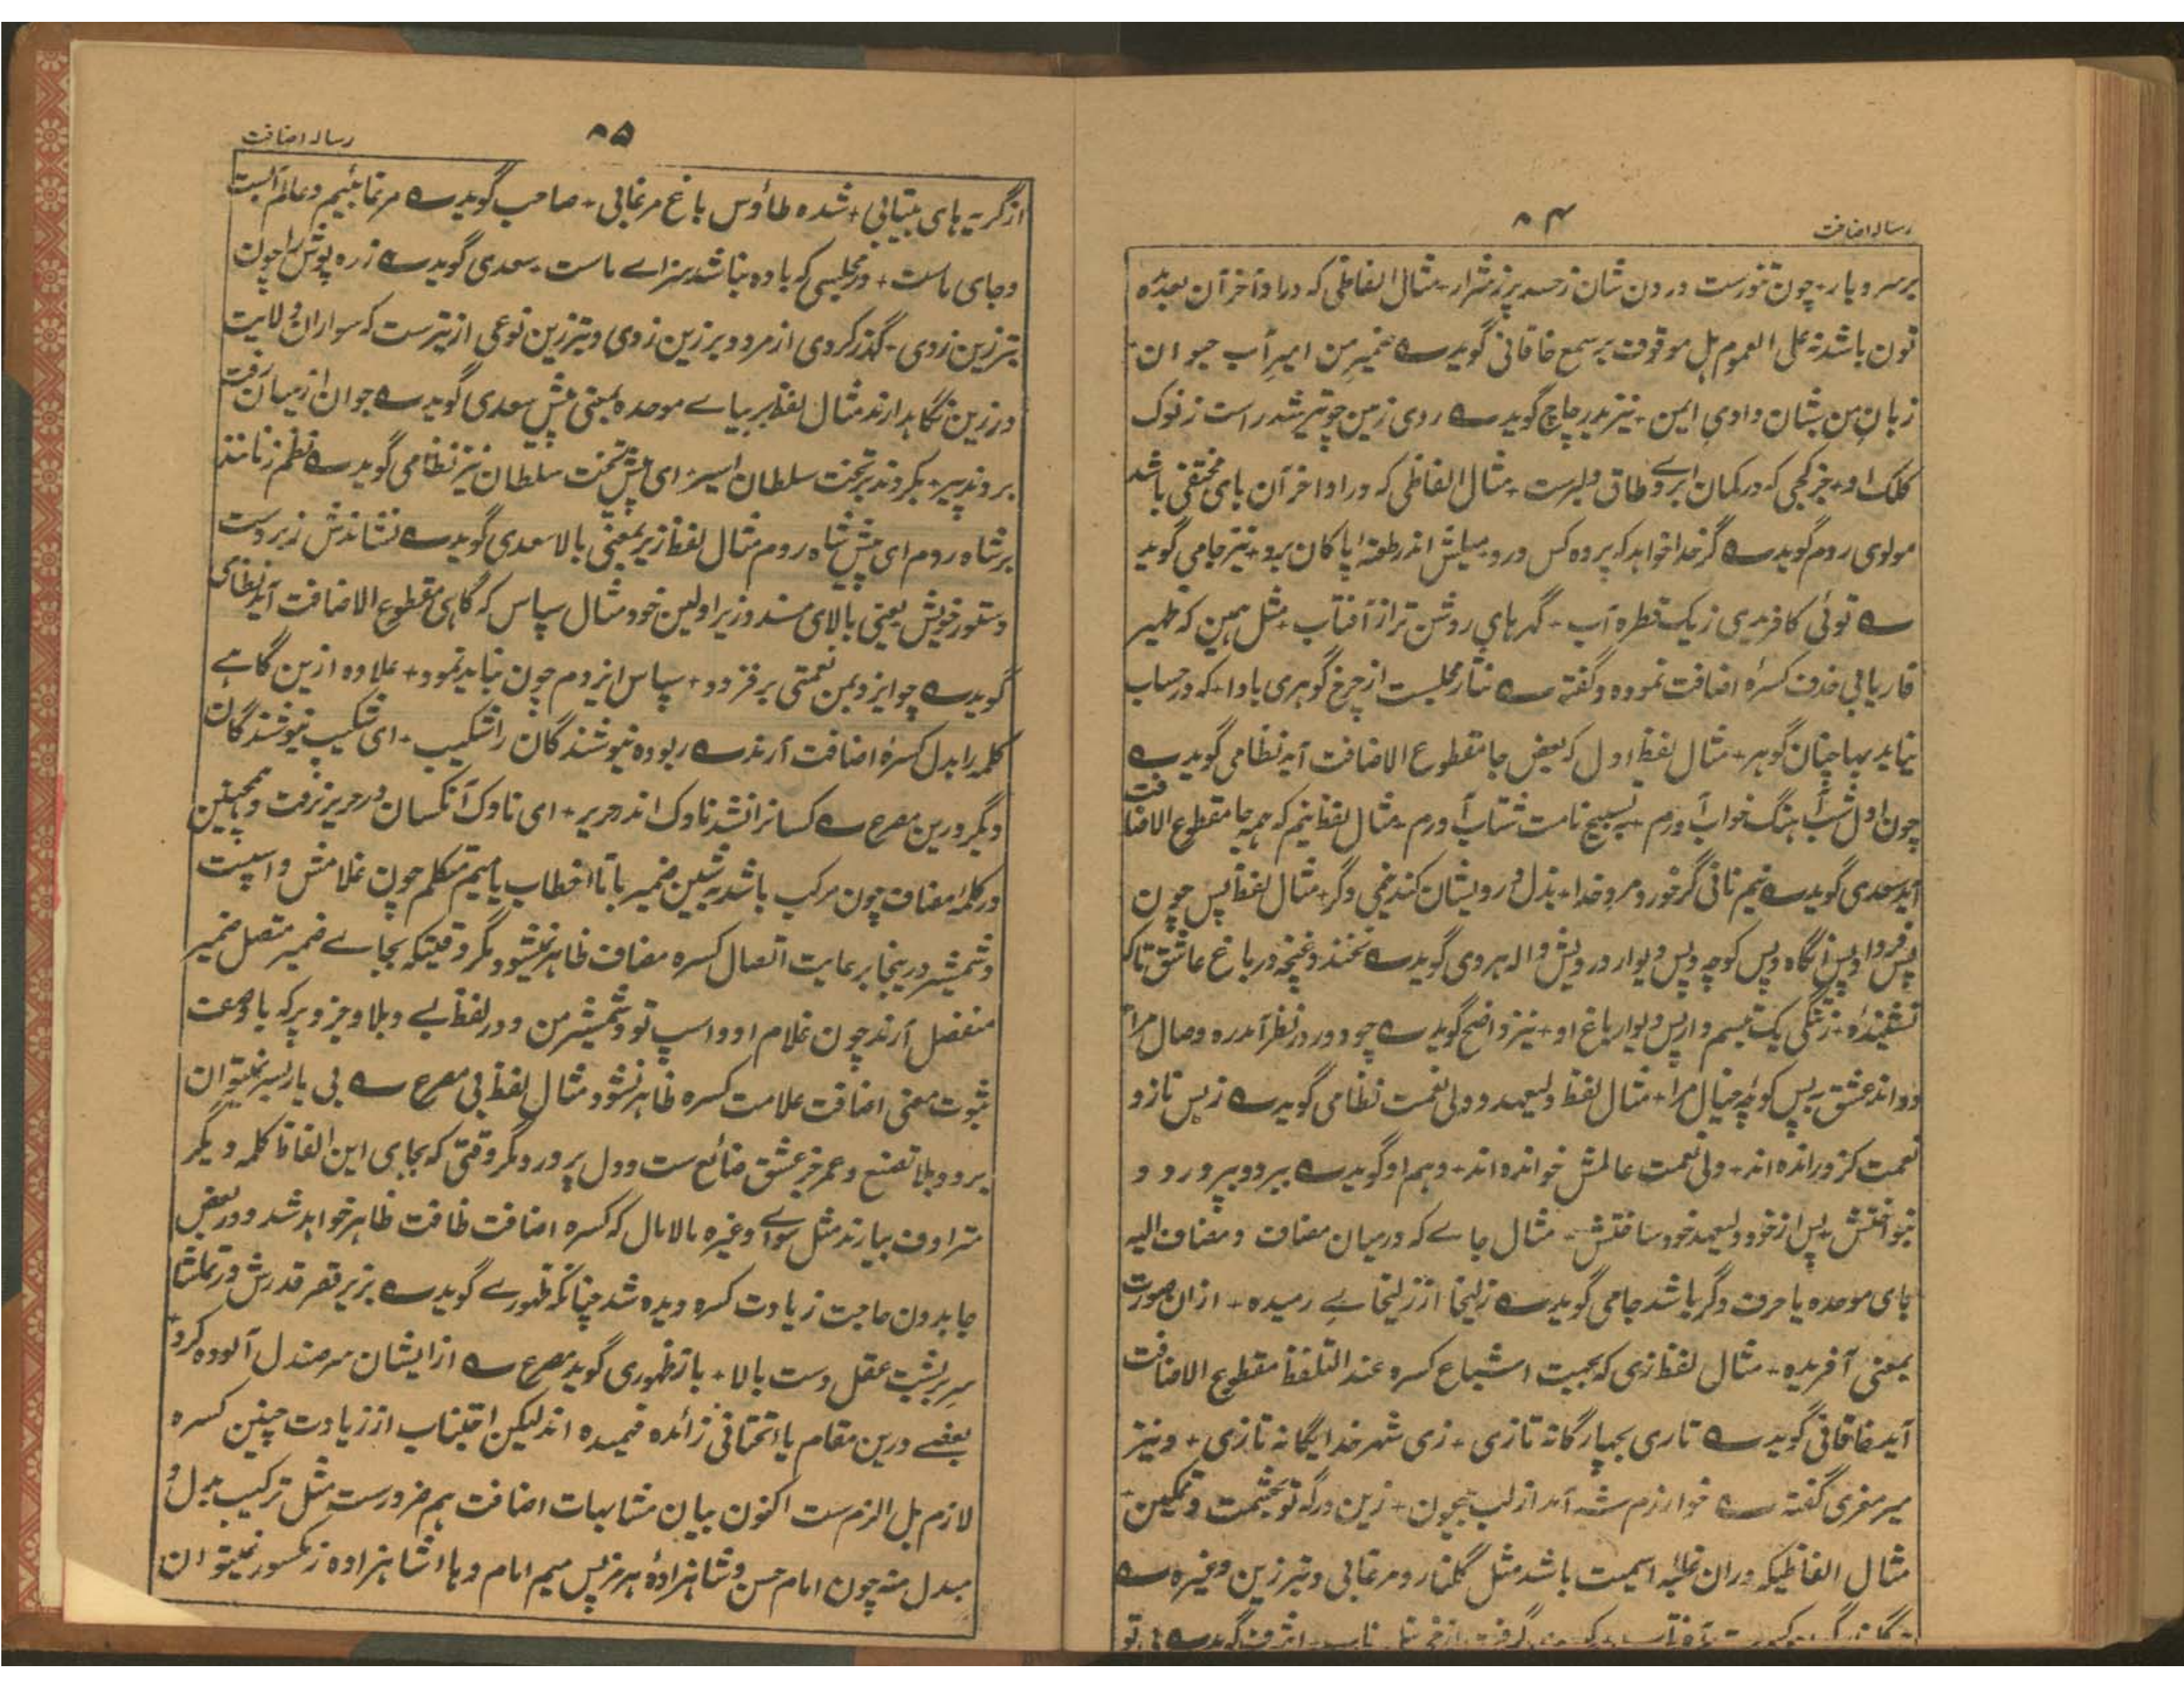 رساله اضافت
۸۴
بر سر و پا رـ چون تنورست درون شان ز حسد پر ز شرارـ مثال الفاظی که در اواخر آن بعد مده
نون باشد نه علی العموم بل موقوف بر سمع خاقانی گوید ؎ ضمیرِ من امیرِ آب حیوان ـ
زبانِ من شبان وادیِ ایمن + نیز بدر چاچ گوید ؎ روی زمین چو تیر شد راست ز نوک
کلک او + جز کجی که در کمان ابروے طاق دلبرست + مثال الفاظی که در اواخر آن ہای مختفی باشد
مولوی روم گوید ؎ گر خدا خواہد که پرده کس درد + میلش اندر طعنهٔ پاکان برد + نیز جامی گوید
؎ توئی کافریدی ز یک قطره آب ـ گہرہایِ روشن تر از آفتاب + مثل ہمین که ظہیر
فاریابی حذف کسرهٔ اضافت نموده و گفته ؎ نثار مجلست از چرخ گوہری بادا ـ که در حساب
نیاید بہا چنان گوہر + مثال لفظ اول که بعض جا مقطوع الاضافت آید نظامی گوید ؎
چون اول شب آہنگ خواب آورم + به تسبیح نامت شتاب آورم ـ مثال لفظ نیم که ہمه جا مقطوع الاضافت
آید سعدی گوید ؎ نیم نانی گر خورد مرد خدا + بذل درویشان کند نیمی دگر + مثال لفظ پس چون
پس فردا و پس آنگاه و پس کوچه و پس دیوار درویش واله ہروی گوید ؎ نخندد غنچه در باغ عاشق تاکه
نشنیده + ز تنگی یک تبسم وار پس دیوار باغ او + نیز واضح گوید ؎ چو دور در نظر آمد ره وصال مرا
دواند عشق به پس کوچهٔ خیال مرا + مثال لفظ ولیعہد و ولی نعمت نظامی گوید ؎ ز بس ناز و
نعمت کزو رانده اند + ولی نعمت عالمش خوانده اند + و ہم او گوید ؎ ببرد و بپرورد و
بنواختش + پس از خود ولیعہد خود ساختش ـ مثال جاے که درمیان مضاف و مضاف الیه
بای موحده یا حرف دگر باشد جامی گوید ؎ زلیخا از زلیخاےِ رمیده + از ان صورت
بمعنی آفریده ـ مثال لفظ زی که بجہت اشباع کسره عند التلفظ مقطوع الاضافت
آید خاقانی گوید ؎ تازی بچہارگانه تازی + زی شہر خدا یگانه تازی + و نیز
میر معزی گفته ؎ خوارزم شه آمد از لب جیحون + زین درگه تو بحشمت و تمکین ـ
مثال الفاظیکه دران غلبهٔ اسمیت باشد مثل گلنار و مرغابی و تبرزین و غیره ؎
رساله اضافت
۸۵
از گریه ہای بیتابی + شده طاؤس باغ مرغابی ـ صاحب گوید ؎ مرغابئیم و عالم آبست
و جای ماست + در مجلسی که باده نباشد سزاے ماست ـ سعدی گوید ؎ زره پوش را چون
تبرزین زدی ـ گذر کردی از مرد و بر زین زدی و تبرزین نوعی از تبرست که سواران ولایت
در زین نگاہدارند مثال لفظ بر بباے موحده بمعنی پیش سعدی گوید ؎ جوان از میان رفت
بردند پیر ـ بگردند بر تخت سلطان اسیر ـ ای پیش تخت سلطان نیز نظامی گوید ؎ تظلم زنانند
بر شاه روم ای پیش شاه روم مثال لفظ زبر بمعنی بالا سعدی گوید ؎ نشاندش زبردست
دستور خویش یعنی بالای مسند وزیر اولین خود مثال سپاس که گاہی مقطوع الاضافت آید نظامی
گوید ؎ چو ایزد بمن نعمتی بر فزود + سپاس ایزدم چون نباید نمود + علاوه ازین گاہے
کلمه را بدل کسرهٔ اضافت آرند ؎ ربوده نیوشندگان را شکیب ـ ای شکیب نیوشندگان
دیگر درین مصرع ؎ کسانرا نشد ناوک اندر حریر + ای ناوک آنکسان در حریر نرفت و ہمچنین
در کلمه مضاف چون مرکب باشد به شین ضمیر یا تاء خطاب یا میم متکلم چون غلامش و اسپت
و شمشیرم درینجا برعایت اتصال کسره مضاف ظاہر نمیشود مگر وقتیکه بجاے ضمیر متصل ضمیر
منفصل آرند چون غلام او و اسپ تو و شمشیر من و در لفظ بے و بلا و جز و پر که با وصف
ثبوت معنی اضافت علامت کسره ظاہر نشود مثال لفظ بی مصرع ؎ بی یار بسر نمیتوان
برد و بلا تصنع و عمر جز عشق ضائع ست و دل پر درد مگر وقتی که بجای این الفاظ کلمه دیگر
مترادف بیارند مثل سواے و غیره مالامال که کسره اضافت ظاہر خواہد شد و در بعض
جا بدون حاجت زیادت کسره دیده شد چنانکه ظہورے گوید ؎ بزیر قصر قدرش در تماشا
سرِ بر پشت عقل دست بالا + باز ظہوری گوید مصرع ؎ از ایشان سرِ صندل آلوده کرد +
بعضے درین مقام یاء تحتانی زائده فہمیده اند لیکن اجتناب از زیادت چنین کسره
لازم بل الزم ست اکنون بیان مشابہات اضافت ہم ضرورست مثل ترکیب بدل و
مبدل منه چون امام حسن و شاہزادهٔ ہرمز پس میم امام و ہاء شاہزاده مکسور نمیتوان